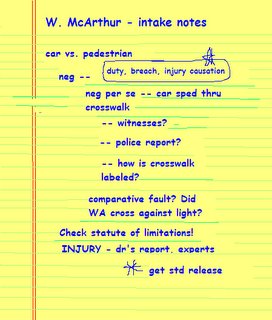 W. McArthur - intake notes
car vs. pedestrian
neg --
duty, breach, injury causation
neg per se -- car sped thru
crosswalk
-- witnesses?
-- police report?
-- how is crosswalk
labeled?
comparative fault? Did
WA cross against light?
Check statute of limitations!
INJURY - dr's report, experts
get std release